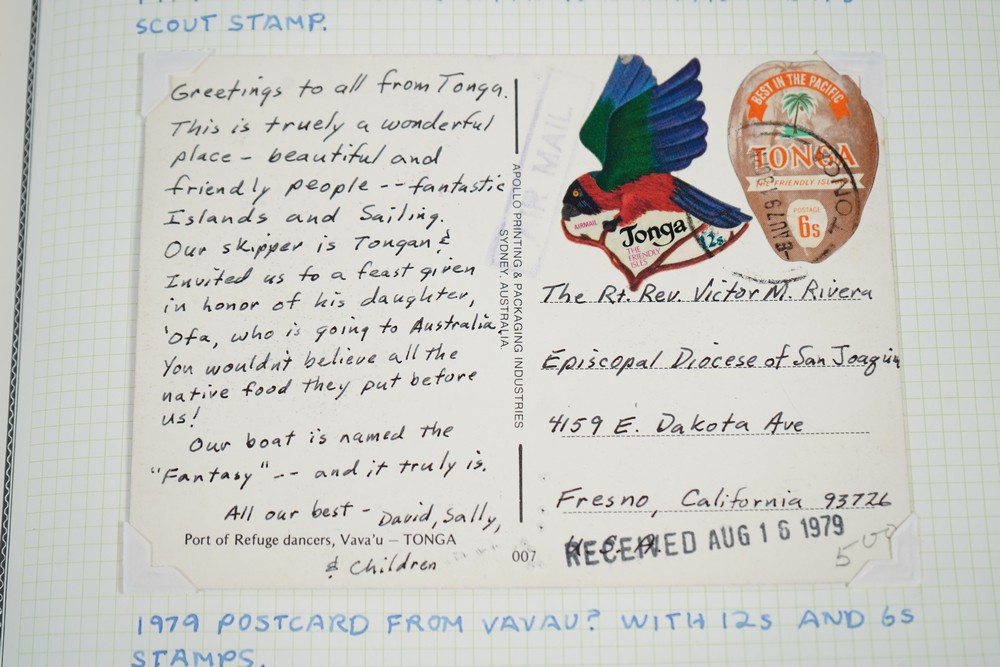 SCOUT STAMP.
Greetings to all from Tonga.
This is truely a wonderful
place - beautiful and
friendly people -- fantastic
Islands and Sailing.
Our skipper is Tongan &
Invited us to a feast given
in honor of his daughter,
'Ofa, who is going to Australia.
You wouldn't believe all the
native food they put before
us!
Our boat is named the
"Fantasy" -- and it truly is.
All our best - David, Sally,
& Children
Port of Refuge dancers, Vava'u – TONGA
007
APOLLO PRINTING & PACKAGING INDUSTRIES
SYDNEY. AUSTRALIA.
AIR MAIL
AIRMAIL
Tonga
THE
FRIENDLY
ISLES
12s
BEST IN THE PACIFIC
TONGA
THE FRIENDLY ISLANDS
POSTAGE
6s
The Rt. Rev. Victor M. Rivera
Episcopal Diocese of San Joaquin
4159 E. Dakota Ave
Fresno, California 93726
U.S.A.
RECEIVED AUG 16 1979
500
1979 POSTCARD FROM VAVAU? WITH 12s AND 6s
STAMPS.